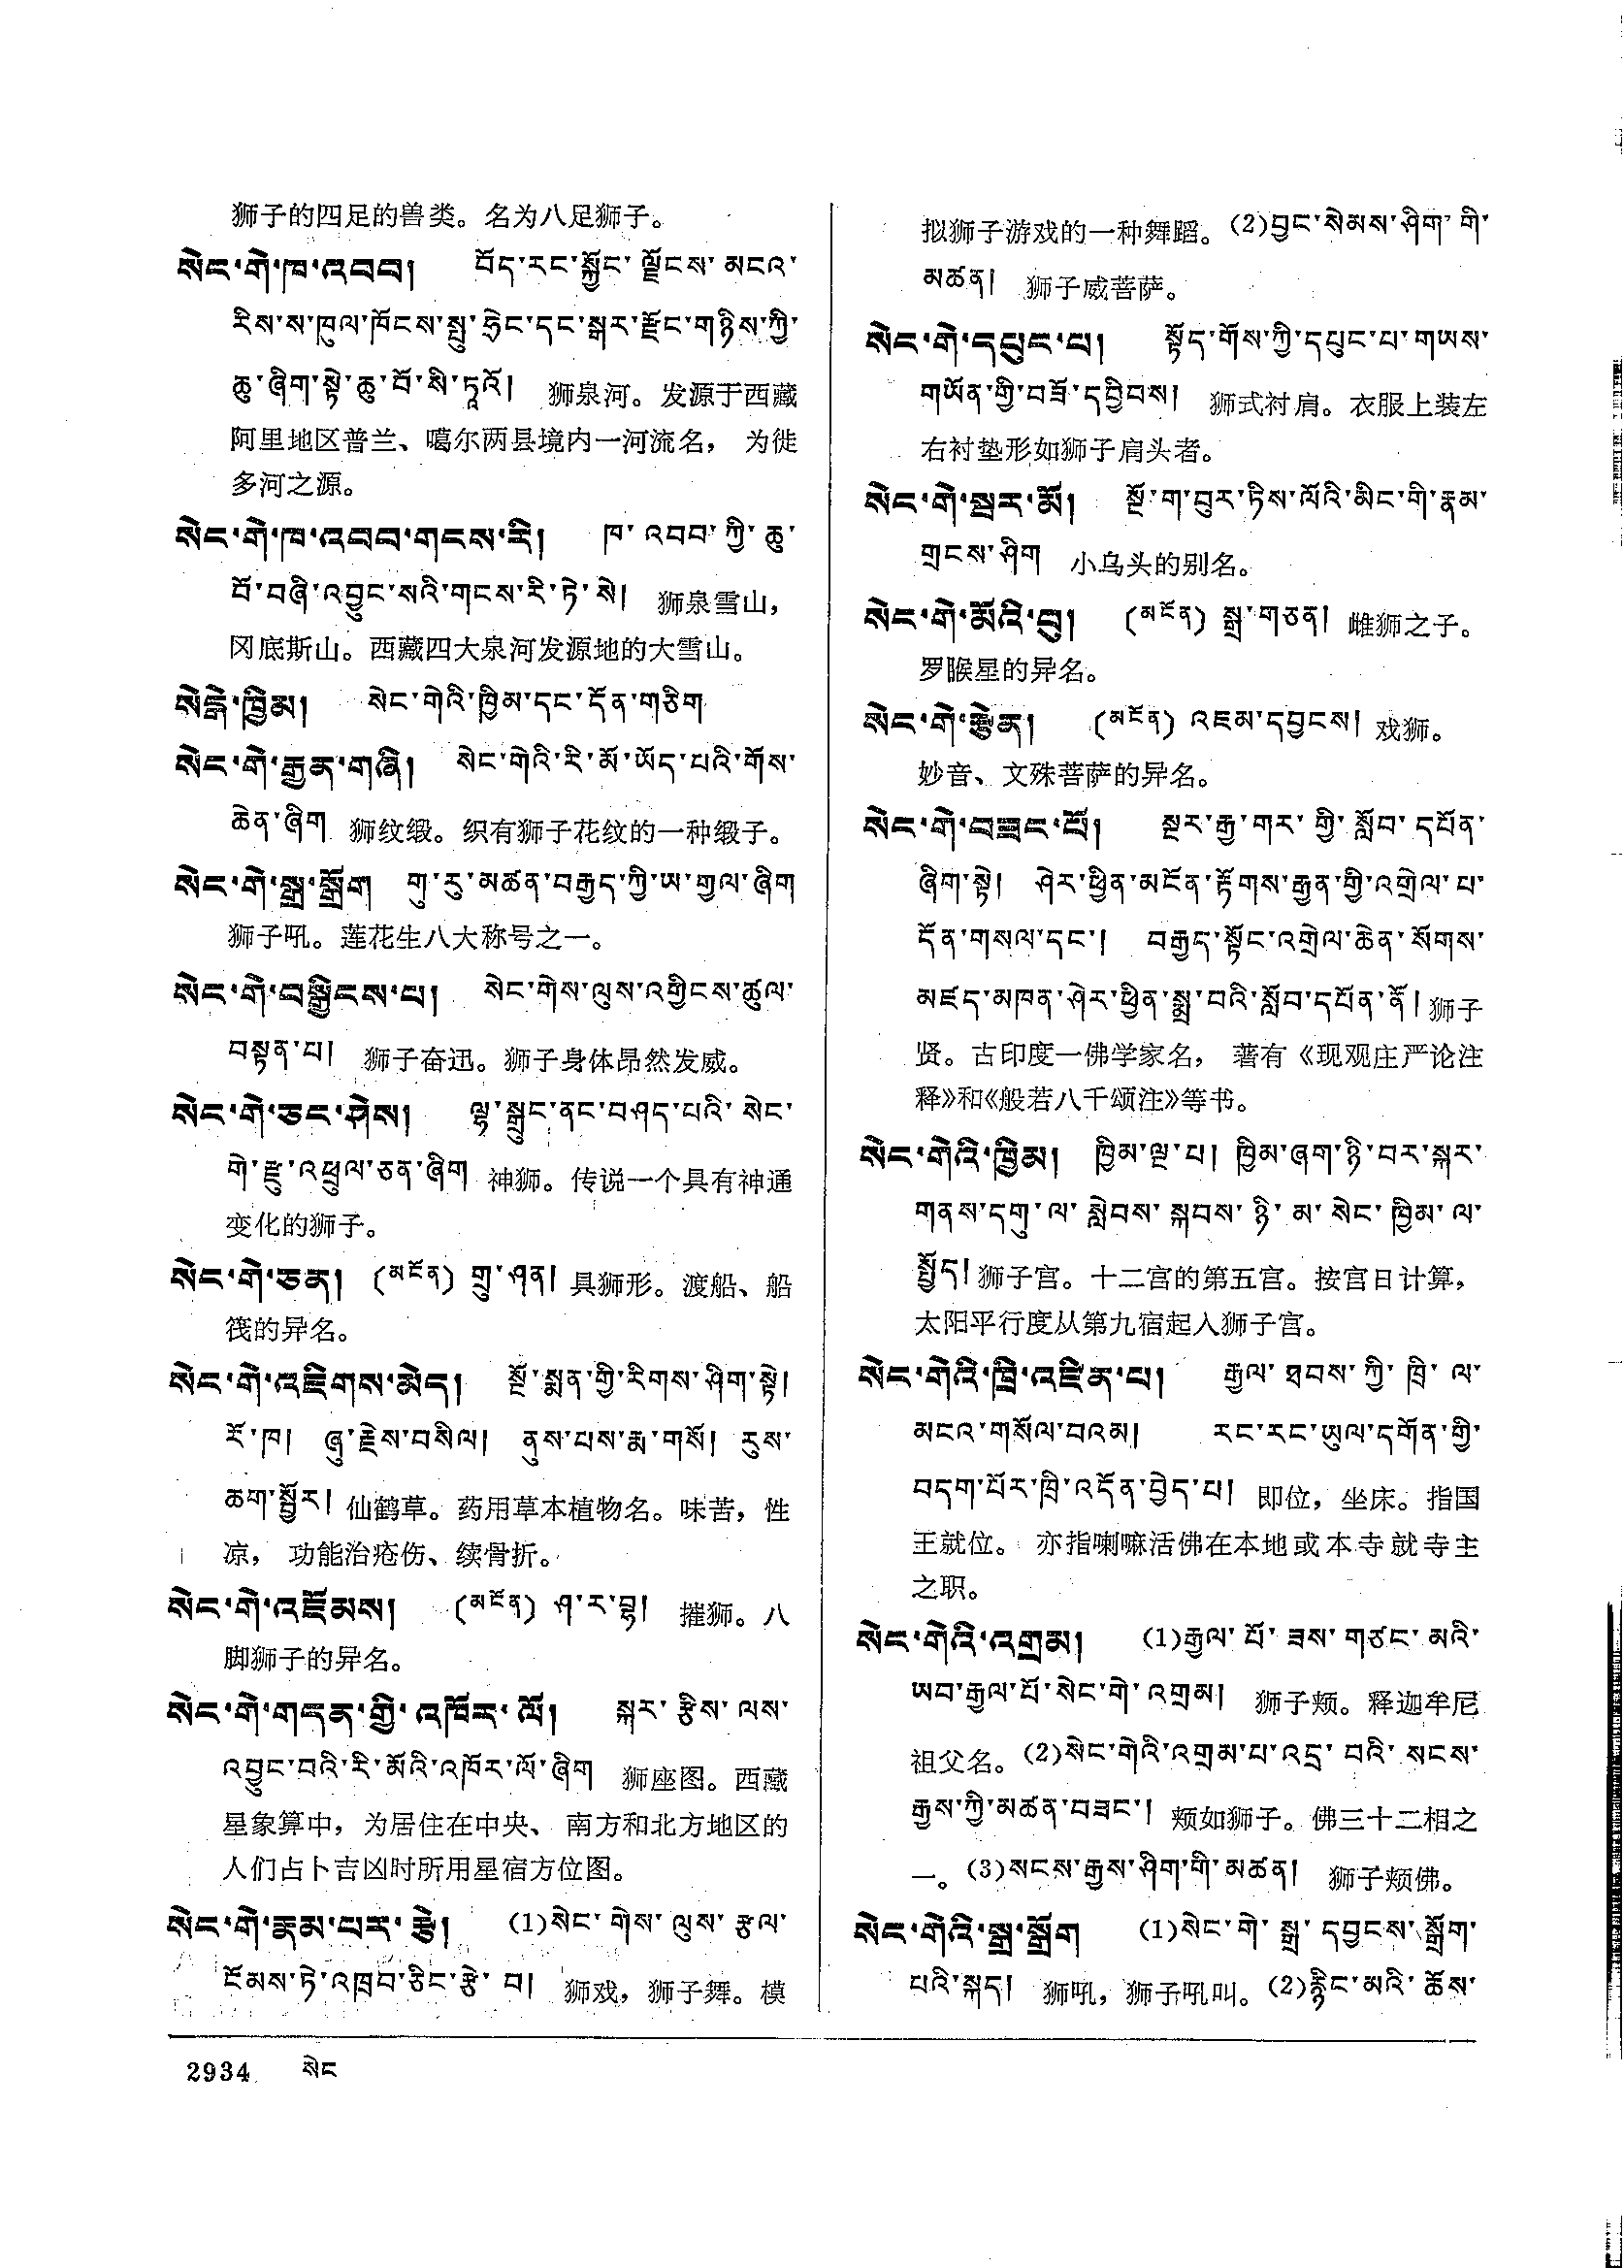 狮子的四足的兽类。名为八足狮子。
སེང་གེ་ཁ་འབབ། བོད་རང་སྐྱོང་ལྗོངས་མངའ་
རིས་ས་ཁུལ་ཁོངས་སྤུ་ཧྲེང་དང་སྒར་རྫོང་གཉིས་ཀྱི་
ཆུ་ཞིག་སྟེ་ཆུ་བོ་སི་ཏཱའོ། 狮泉河。发源于西藏
阿里地区普兰、噶尔两县境内一河流名，为徙
多河之源。
སེང་གེ་ཁ་འབབ་གངས་རི། ཁ་འབབ་ཀྱི་ཆུ་
བོ་བཞི་འབྱུང་སའི་གངས་རི་ཏེ་སེ། 狮泉雪山，
冈底斯山。西藏四大泉河发源地的大雪山。
སེངྒེ་ཁྱིམ། སེང་གེའི་ཁྱིམ་དང་དོན་གཅིག
སེང་གེ་རྒྱན་གཞི། སེང་གེའི་རི་མོ་ཡོད་པའི་གོས་
ཆེན་ཞིག 狮纹缎。织有狮子花纹的一种缎子。
སེང་གེ་སྒྲ་སྒྲོག གུ་རུ་མཚན་བརྒྱད་ཀྱི་ཡ་གྱལ་ཞིག
狮子吼。莲花生八大称号之一。
སེང་གེ་བསྒྱིངས་པ། སེང་གེས་ལུས་འགྱིངས་ཚུལ་
བསྟན་པ། 狮子奋迅。狮子身体昂然发威。
སེང་གེ་ཅང་ཤེས། ལྷ་སྒྲུང་ནང་བཤད་པའི་སེང་
གེ་རྫུ་འཕྲུལ་ཅན་ཞིག 神狮。传说一个具有神通
变化的狮子。
སེང་གེ་ཅན། (མངོན) གྲུ་ཤན། 具狮形。渡船、船
筏的异名。
སེང་གེ་འཇིགས་མེད། སྔོ་སྨན་གྱི་རིགས་ཤིག་སྟེ།
རོ་ཁ། ཞུ་རྗེས་བསིལ། ནུས་པས་རྨ་གསོ། རུས་
ཆག་སྦྱོར། 仙鹤草。药用草本植物名。味苦，性
凉，功能治疮伤、续骨折。
སེང་གེ་འཇོམས། (མངོན) ཤ་ར་བྷ། 摧狮。八
脚狮子的异名。
སེང་གེ་གདན་གྱི་འཁོར་ལོ། སྐར་རྩིས་ལས་
འབྱུང་བའི་རི་མོའི་འཁོར་ལོ་ཞིག 狮座图。西藏
星象算中，为居住在中央、南方和北方地区的
人们占卜吉凶时所用星宿方位图。
སེང་གེ་རྣམ་པར་རྩེ། (1)སེང་གེས་ལུས་རྩལ་
ངོམས་ཏེ་འཁྲབ་ཅིང་རྩེ་བ། 狮戏，狮子舞。模
拟狮子游戏的一种舞蹈。(2)བྱང་སེམས་ཤིག་གི་
མཚན། 狮子威菩萨。
སེང་གེ་དཔུང་པ། སྟོད་གོས་ཀྱི་དཔུང་པ་གཡས་
གཡོན་གྱི་བཟོ་དབྱིབས། 狮式衬肩。衣服上装左
右衬垫形如狮子肩头者。
སེང་གེ་སྤར་མོ། སྔོ་ག་བུར་ཏིས་ལོའི་མིང་གི་རྣམ་
གྲངས་ཤིག 小乌头的别名。
སེང་གེ་མོའི་བུ། (མངོན) སྒྲ་གཅན། 雌狮之子。
罗睺星的异名。
སེང་གེ་རྩེན། (མངོན) འཇམ་དབྱངས། 戏狮。
妙音、文殊菩萨的异名。
སེང་གེ་བཟང་པོ། སྔར་རྒྱ་གར་གྱི་སློབ་དཔོན་
ཞིག་སྟེ། ཤེར་ཕྱིན་མངོན་རྟོགས་རྒྱན་གྱི་འགྲེལ་པ་
དོན་གསལ་དང་། བརྒྱད་སྟོང་འགྲེལ་ཆེན་སོགས་
མཛད་མཁན་ཤེར་ཕྱིན་སྨྲ་བའི་སློབ་དཔོན་ནོ། 狮子
贤。古印度一佛学家名，著有《现观庄严论注
释》和《般若八千颂注》等书。
སེང་གེའི་ཁྱིམ། ཁྱིམ་ལྔ་པ། ཁྱིམ་ཞག་ཉི་བར་སྐར་
གནས་དགུ་ལ་སླེབས་སྐབས་ཉི་མ་སེང་ཁྱིམ་ལ་
སྤྱོད། 狮子宫。十二宫的第五宫。按宫日计算，
太阳平行度从第九宿起入狮子宫。
སེང་གེའི་ཁྲི་འཛིན་པ། རྒྱལ་ཐབས་ཀྱི་ཁྲི་ལ་
མངའ་གསོལ་བའམ། རང་རང་ཡུལ་དགོན་གྱི་
བདག་པོར་ཁྲི་འདོན་བྱེད་པ། 即位，坐床。指国
王就位。亦指喇嘛活佛在本地或本寺就寺主
之职。
སེང་གེའི་འགྲམ། (1)རྒྱལ་པོ་ཟས་གཙང་མའི་
ཡབ་རྒྱལ་པོ་སེང་གེ་འགྲམ། 狮子颊。释迦牟尼
祖父名。(2)སེང་གེའི་འགྲམ་པ་འདྲ་བའི་སངས་
རྒྱས་ཀྱི་མཚན་བཟང་། 颊如狮子。佛三十二相之
一。(3)སངས་རྒྱས་ཤིག་གི་མཚན། 狮子颊佛。
སེང་གེའི་སྒྲ་སྒྲོག (1)སེང་གེ་སྒྲ་དབྱངས་སྒྲོག་
པའི་སྐད། 狮吼，狮子吼叫。(2)རྙིང་མའི་ཆོས་
2934 སེང